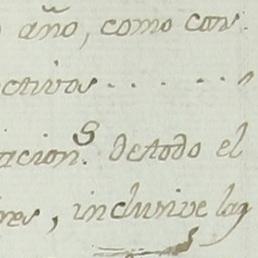 año, como cons
ectivos . . . . . . "
acion.s de todo el
res, inclusive las